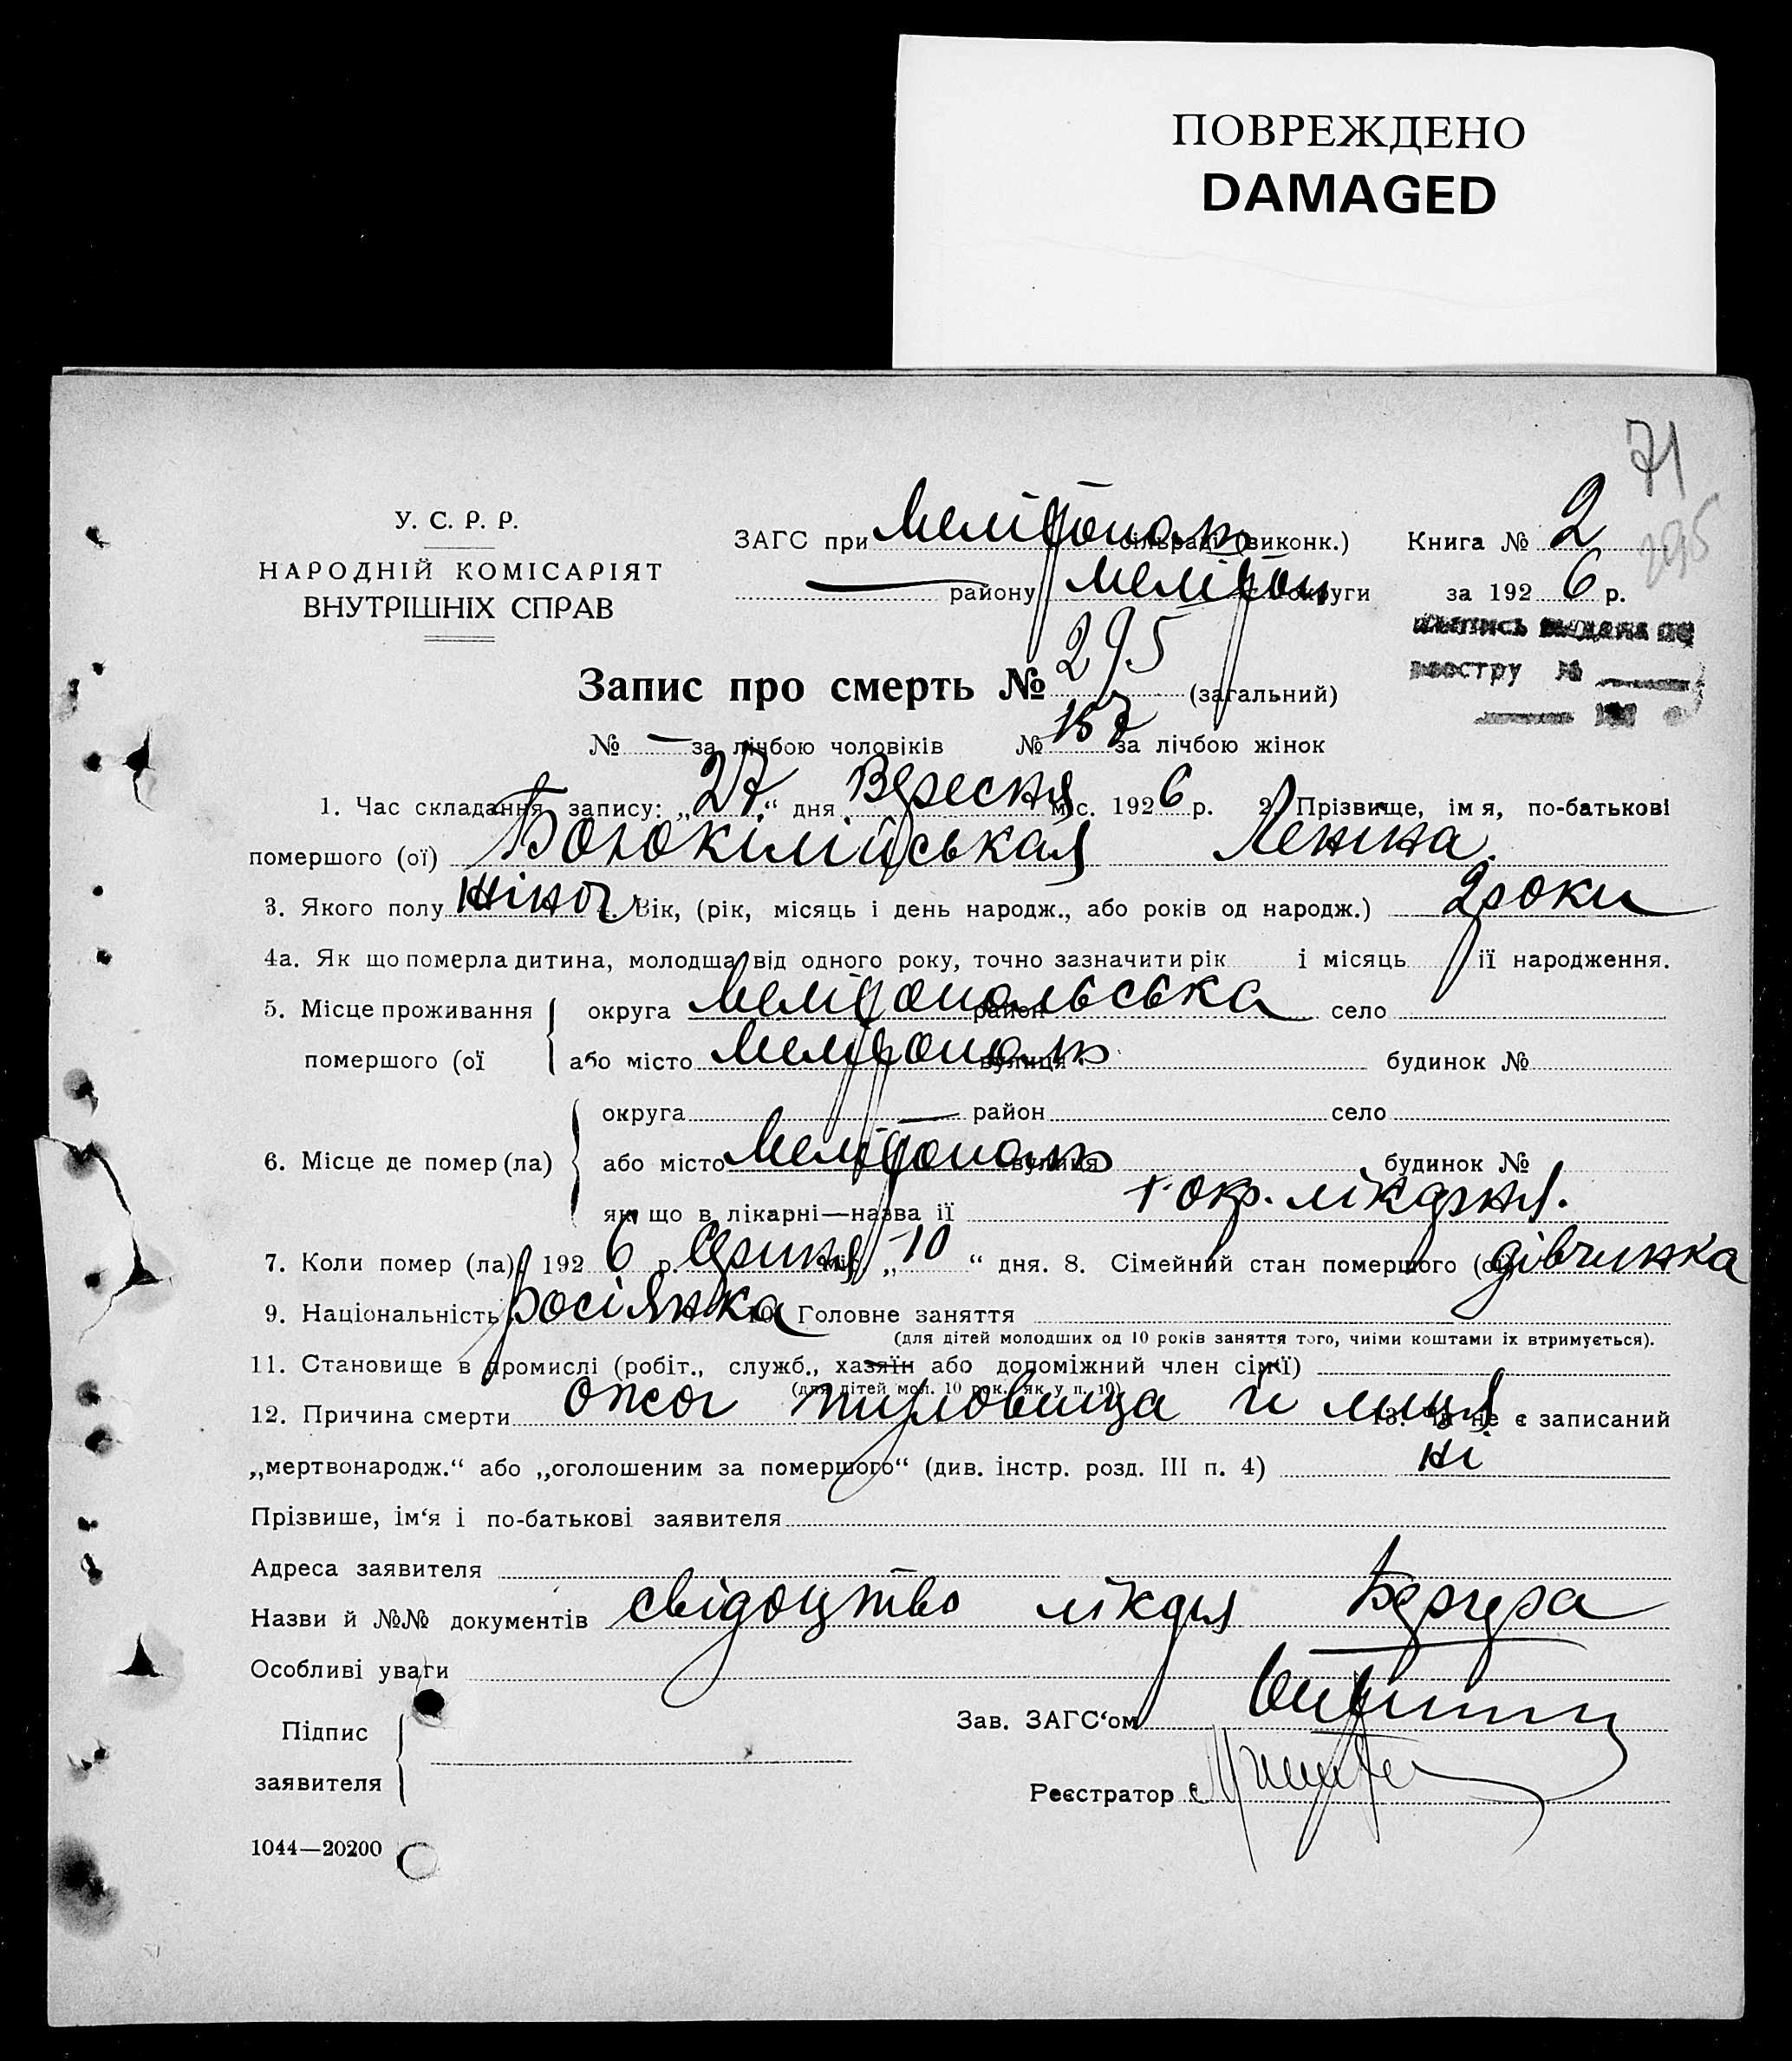 ПОВРЕЖДЕНО
DAMAGED
71
У. С. Р. Р.
НАРОДНІЙ КОМІСАРІЯТ
ВНУТРІШНІХ СПРАВ
ЗАГС при Мелітополь сільраді (виконк.) Книга № 2
295
— району Мелітоп округи за 1926 р.
реєстру №
Запис про смерть № 295 (загальний)
№ — за лічбою чоловіків № 157 за лічбою жінок
1. Час складання запису: „27“ дня Вересня міс. 1926 р. 2. Прізвище, імя, по-батькові
помершого (ої)
3. Якого полу жіноч 4. Вік, (рік, місяць і день народж., або років од народж.) 2 роки
4а. Як що померла дитина, молодша від одного року, точно зазначити рік і місяць її народження.
5. Місце проживання округа Мелітопольська район село
помершого (ої або місто Мелітополь вулиця будинок №
округа — район село
6. Місце де помер (ла) або місто Мелітополь вулиця будинок №
як що в лікарні—назва її 1 окр. лікарня.
7. Коли помер (ла) 1926 р. Серпня міс. „10“ дня. 8. Сімейний стан помершого (ої) дівчинка
9. Національність росіянка 10. Головне заняття
(для дітей молодших од 10 років заняття того, чиїми коштами їх втримується).
11. Становище в промислі (робіт., служб., хазяїн або допоміжний член сімї)
(для дітей мол. 10 рок. як у п. 10)
12. Причина смерти ожог туловища и лиця 13. Чи не є записаний
„мертвонародж.“ або „оголошеним за помершого“ (див. інстр. розд. III п. 4) ні
Прізвише, ім‘я і по-батькові заявителя
Адреса заявителя
Назви й №№ документів свідоцтво лікаря Бергера
Особливі уваги
Підпис
заявителя
Зав. ЗАГС‘ом
Реєстратор
1044—20200